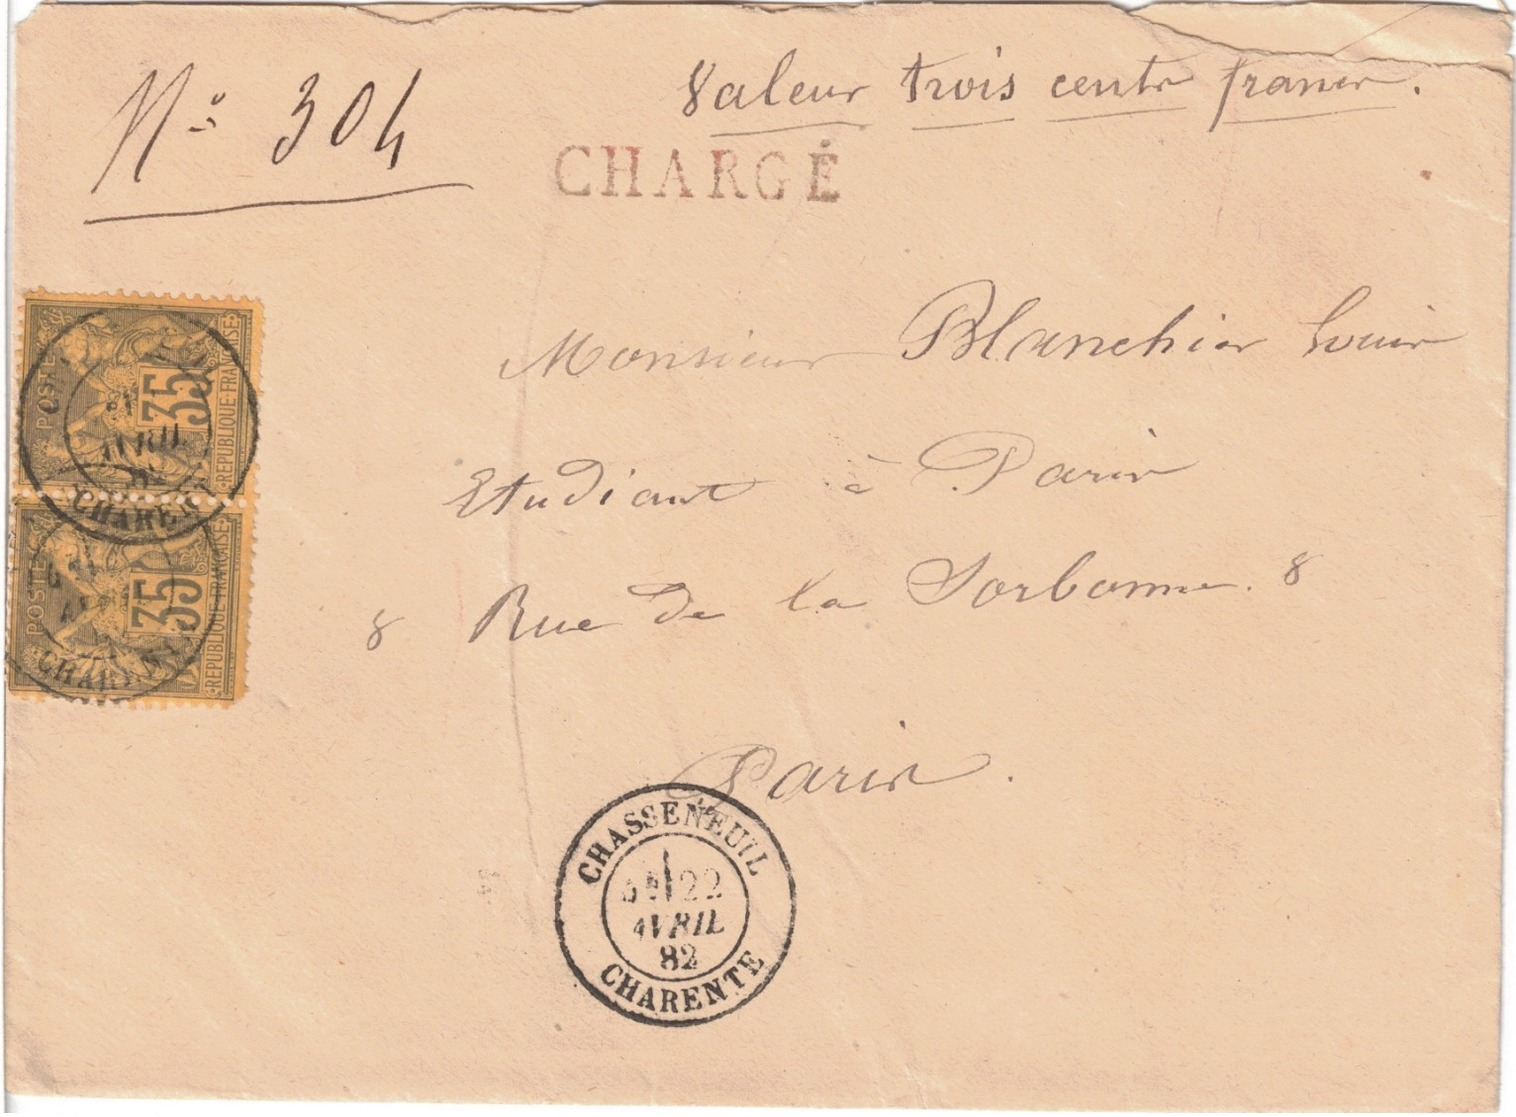 Valeur trois cents francs.
No 304
CHARGÉ
POSTES
35
REPUBLIQUE FRANÇAISE
AVRIL
CHARENTE
Monsieur Blanchier Louis
Etudiant à Paris
8 Rue de la Sorbonne. 8
POSTES
35
REPUBLIQUE FRANÇAISE
CHARENTE
Paris.
CHASSENEUIL
22
AVRIL
82
CHARENTE